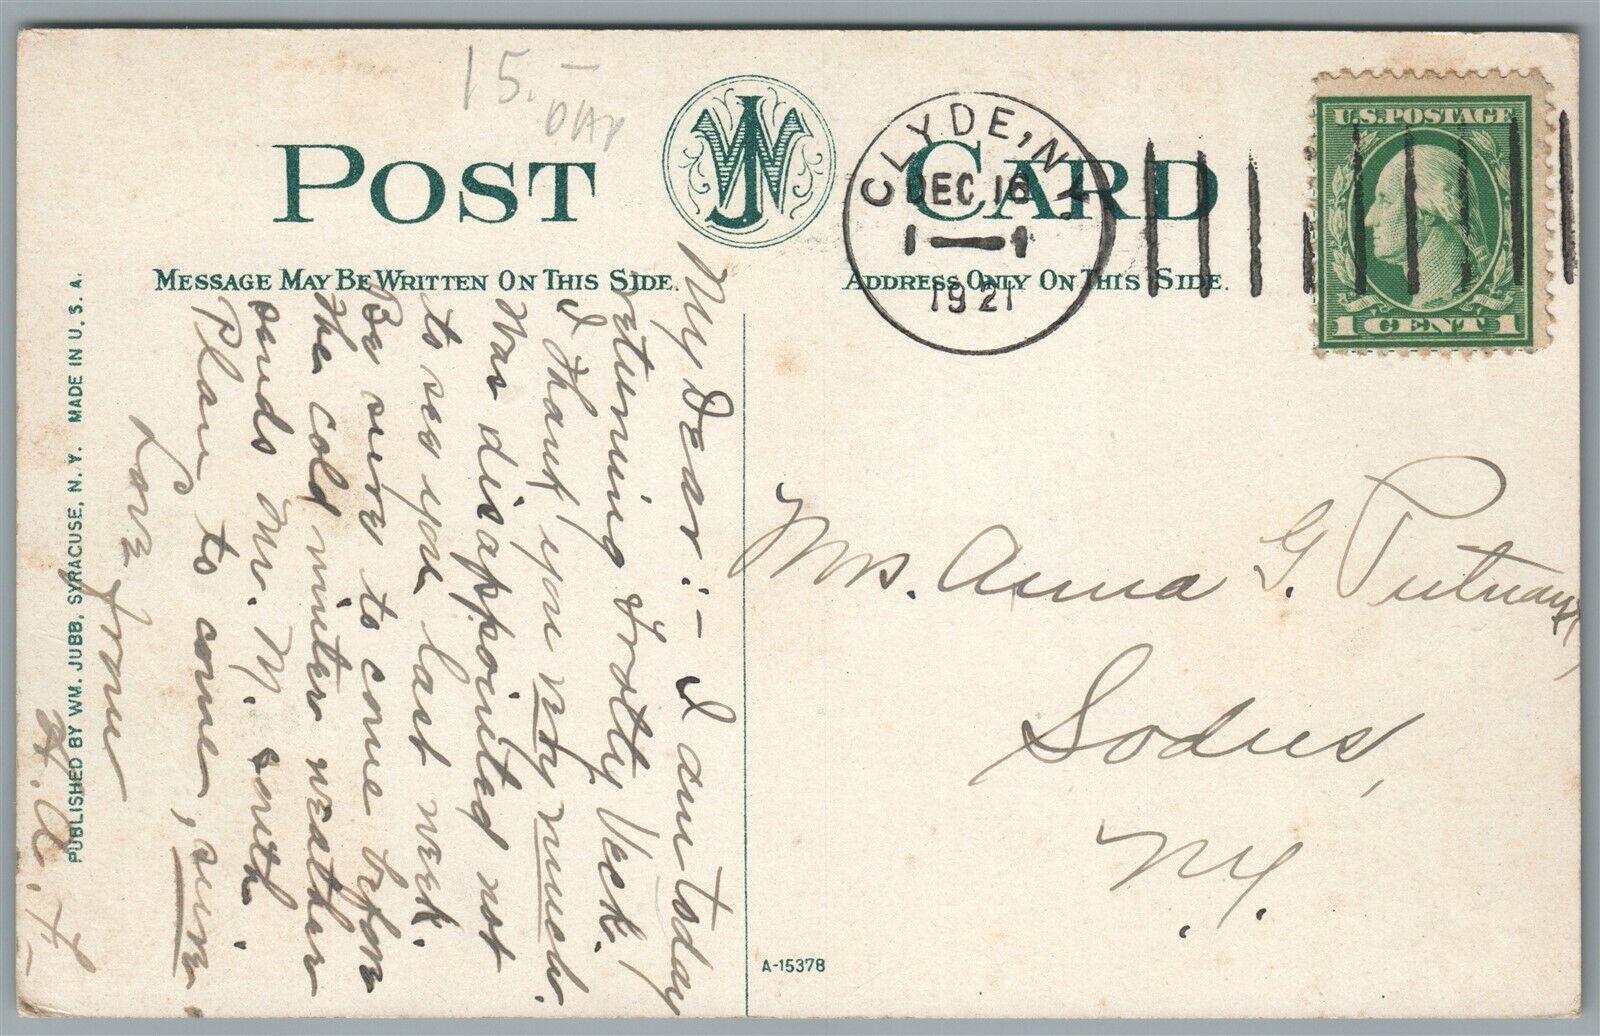 15.—
POST CARD
JW
CLYDE, N.Y.
DEC 16
1 — 1
1921
U.S. POSTAGE
1 CENT 1
MESSAGE MAY BE WRITTEN ON THIS SIDE.
ADDRESS ONLY ON THIS SIDE.
My Dear:– I am today
returning Frosty Veck.
I thank you very much.
Was disappointed not
to see you last week.
Be sure to come before
the cold winter weather
sends Mr. M. south.
Plan to come, sure.
Love from
H. A. F–
Mrs. Anna G. Putnam,
Sodus,
N.Y.
PUBLISHED BY WM. JUBB, SYRACUSE, N.Y. MADE IN U.S.A.
A-15378